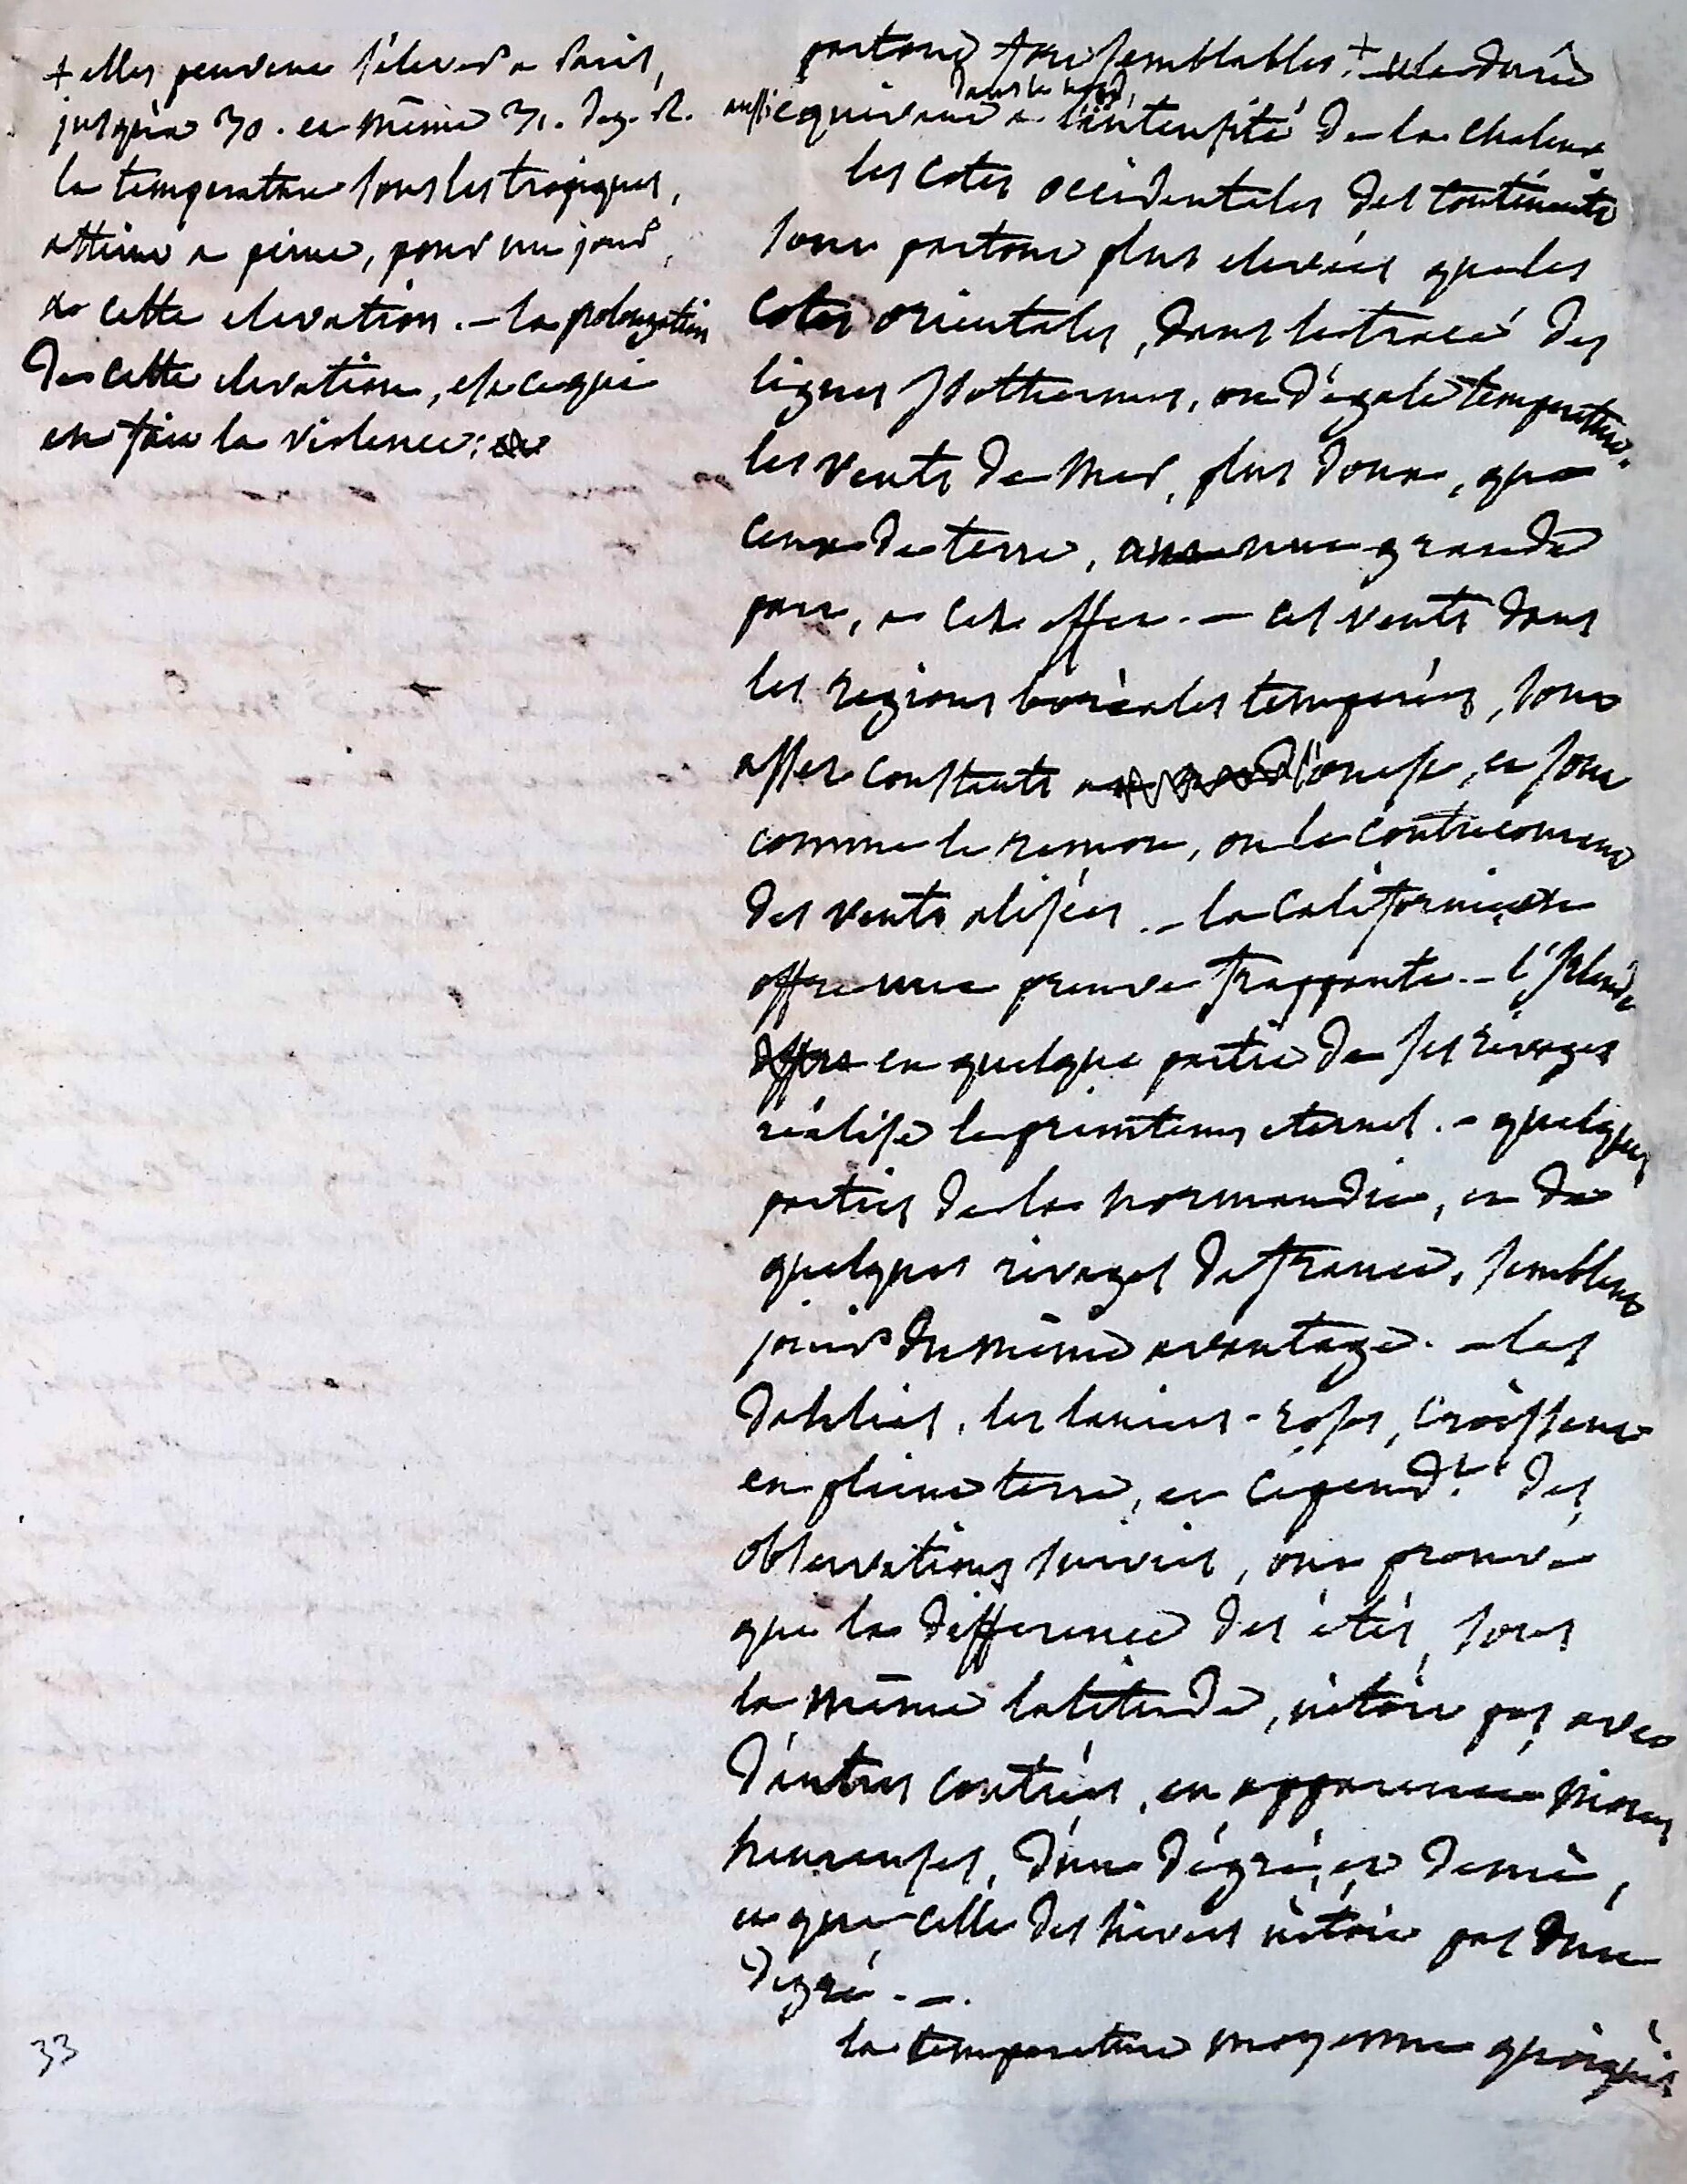 + elles peuvent s'élever a Paris,
jusqu'à 30. et même 31. deg. R.
la temperature sous les tropiques,
atteint a peine, pour un jour,
a cette elevation. – la prolongation
de cette elevation, est ce qui
en fait la violence;
partout fort semblables. + la durée
aussi equivaut dans le nord, a l'intensité de la chaleur.
les cotes occidentales des continents
sont partout plus elevées que les
cotes orientales, dans le tracé des
lignes isothermes, ou d'égale temperature.
les vents de mer, plus doux, que
ceux de terre, ont une grande
part, a cet effet. – ces vents dans
les regions boréales temperées, sont
assez constants a l'ouest, et sont
comme le remou, ou le contrecourant
des vents alisées. – la Californie en
offre une preuve frappante. – l'Irlande
en quelque partie de ses rivages
réalise le printems eternel. – quelques
parties de la normandie, et de
quelques rivages de france, semblent
jouir du même avantage. – les
Dahlias, les lauriers-roses, croissent
en pleine terre, et cepend.t des
observations suivies, ont prouvé
que la difference des étés, sous
la même latitude, n'étoit pas avec
d'autres contrées, en apparence moins
heureuses, d'un dégré, et demi,
et que celle des hivers n'étoit pas d'un
degré. – .
la temperature moyenne quoiqu'ici
33